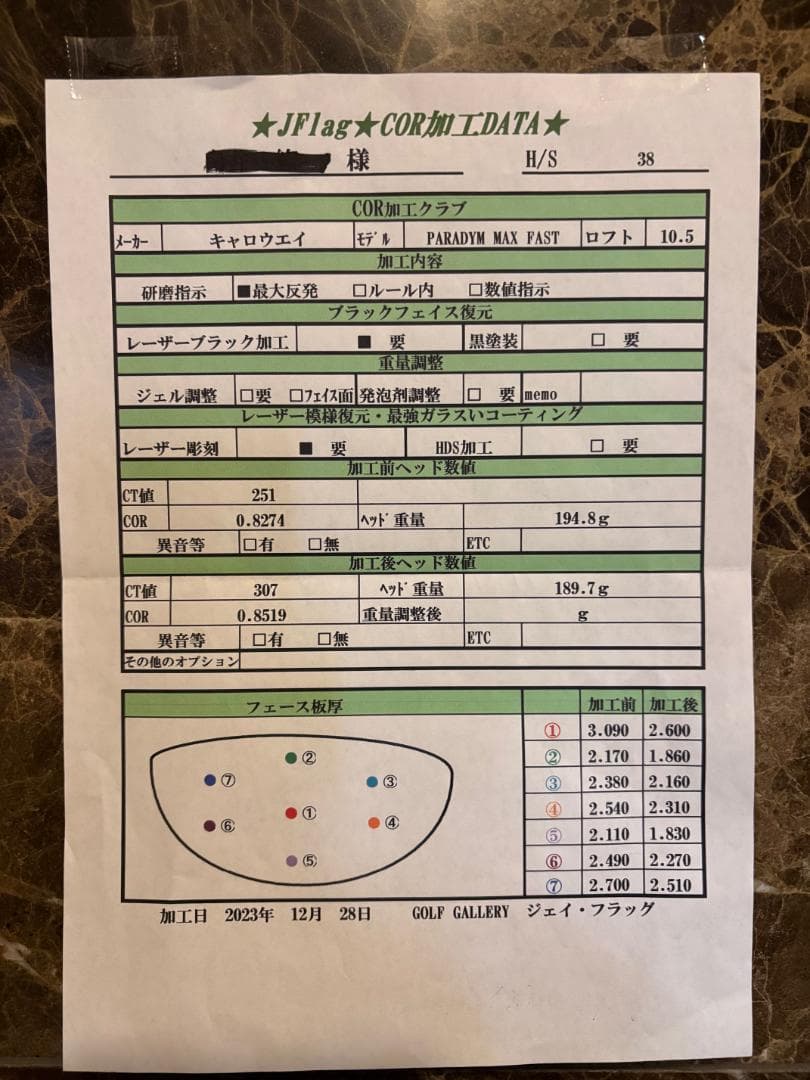 ★JFlag★COR加工DATA★
様 H/S 38
COR加工クラブ
ﾒｰｶｰ キャロウエイ ﾓﾃﾞﾙ PARADYM MAX FAST ロフト 10.5
加工内容
研磨指示 ■最大反発 □ルール内 □数値指示
ブラックフェイス復元
レーザーブラック加工 ■ 要 黒塗装 □ 要
重量調整
ジェル調整 □要 □ﾌｪｲｽ面 発泡剤調整 □ 要 memo
レーザー模様復元・最強ガラスいコーティング
レーザー彫刻 ■ 要 HDS加工 □ 要
加工前ヘッド数値
CT値 251
COR 0.8274 ﾍｯﾄﾞ重量 194.8g
異音等 □有 □無 ETC
加工後ヘッド数値
CT値 307 ﾍｯﾄﾞ重量 189.7g
COR 0.8519 重量調整後 g
異音等 □有 □無 ETC
その他のオプション
フェース板厚 加工前 加工後
① 3.090 2.600
② 2.170 1.860
③ 2.380 2.160
④ 2.540 2.310
⑤ 2.110 1.830
⑥ 2.490 2.270
⑦ 2.700 2.510
②
⑦ ③
①
⑥ ④
⑤
加工日 2023年 12月 28日 GOLF GALLERY ジェイ・フラッグ